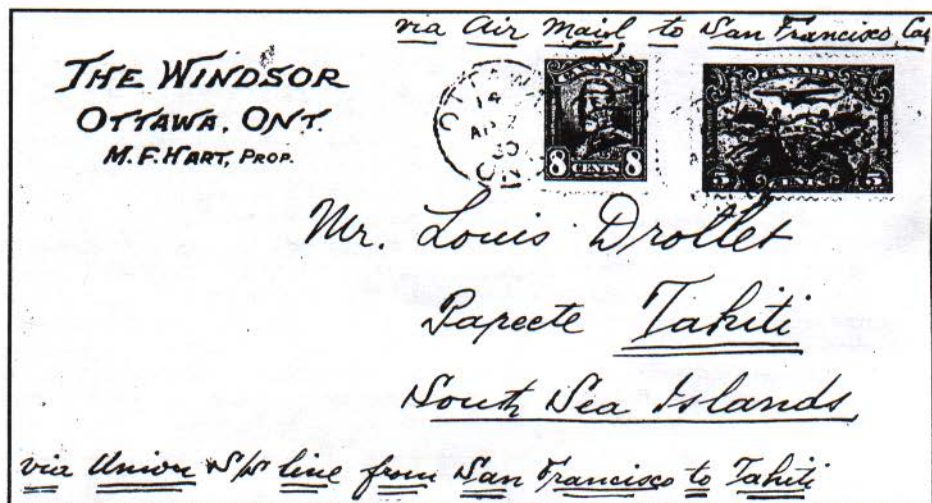 via Air Mail to San Francisco, Cal
THE WINDSOR
OTTAWA, ONT.
M. F. HART, PROP.
OTTAWA
14
30
CANADA
8 CENTS 8
CANADA
5 CENTS 5
Mr. Louis Drollet
Papeete Tahiti
South Sea Islands
via Union S/S line from San Francisco to Tahiti